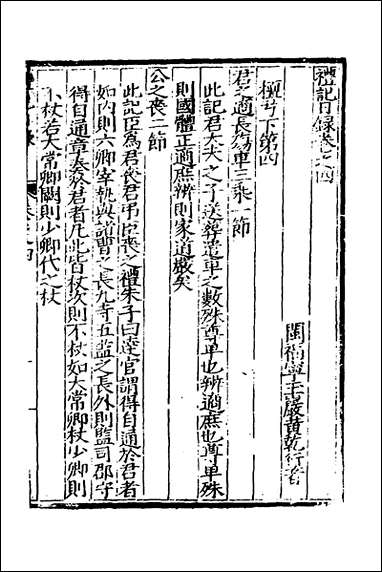 禮記日錄卷之四
閩福寧玉巖黃乾行著
檀弓下第四
君之適長殤車三乘一節
此記君大夫之子送葬遣車之數殊尊卑也辨適庶也尊卑殊
則國體正適庶辨則家道嚴矣
公之喪二節
此記臣為君喪君弔臣喪之禮朱子曰達官謂得自通於君者
如內則六卿宰執與諸曹之長九寺五監之長外則監司郡守
得自通章奏於君者凡此皆杖次則不杖如大常卿杖少卿則
不杖若大常卿闕則少卿代之杖